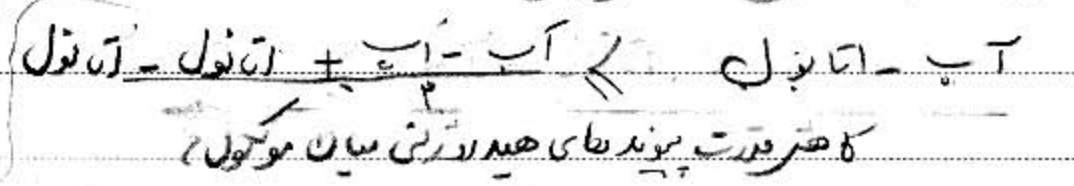 آب - اتانول > آب - آب + اتانول - اتانول / ۲
کاهش قدرت پیوندهای هیدروژنی میان مولکولی